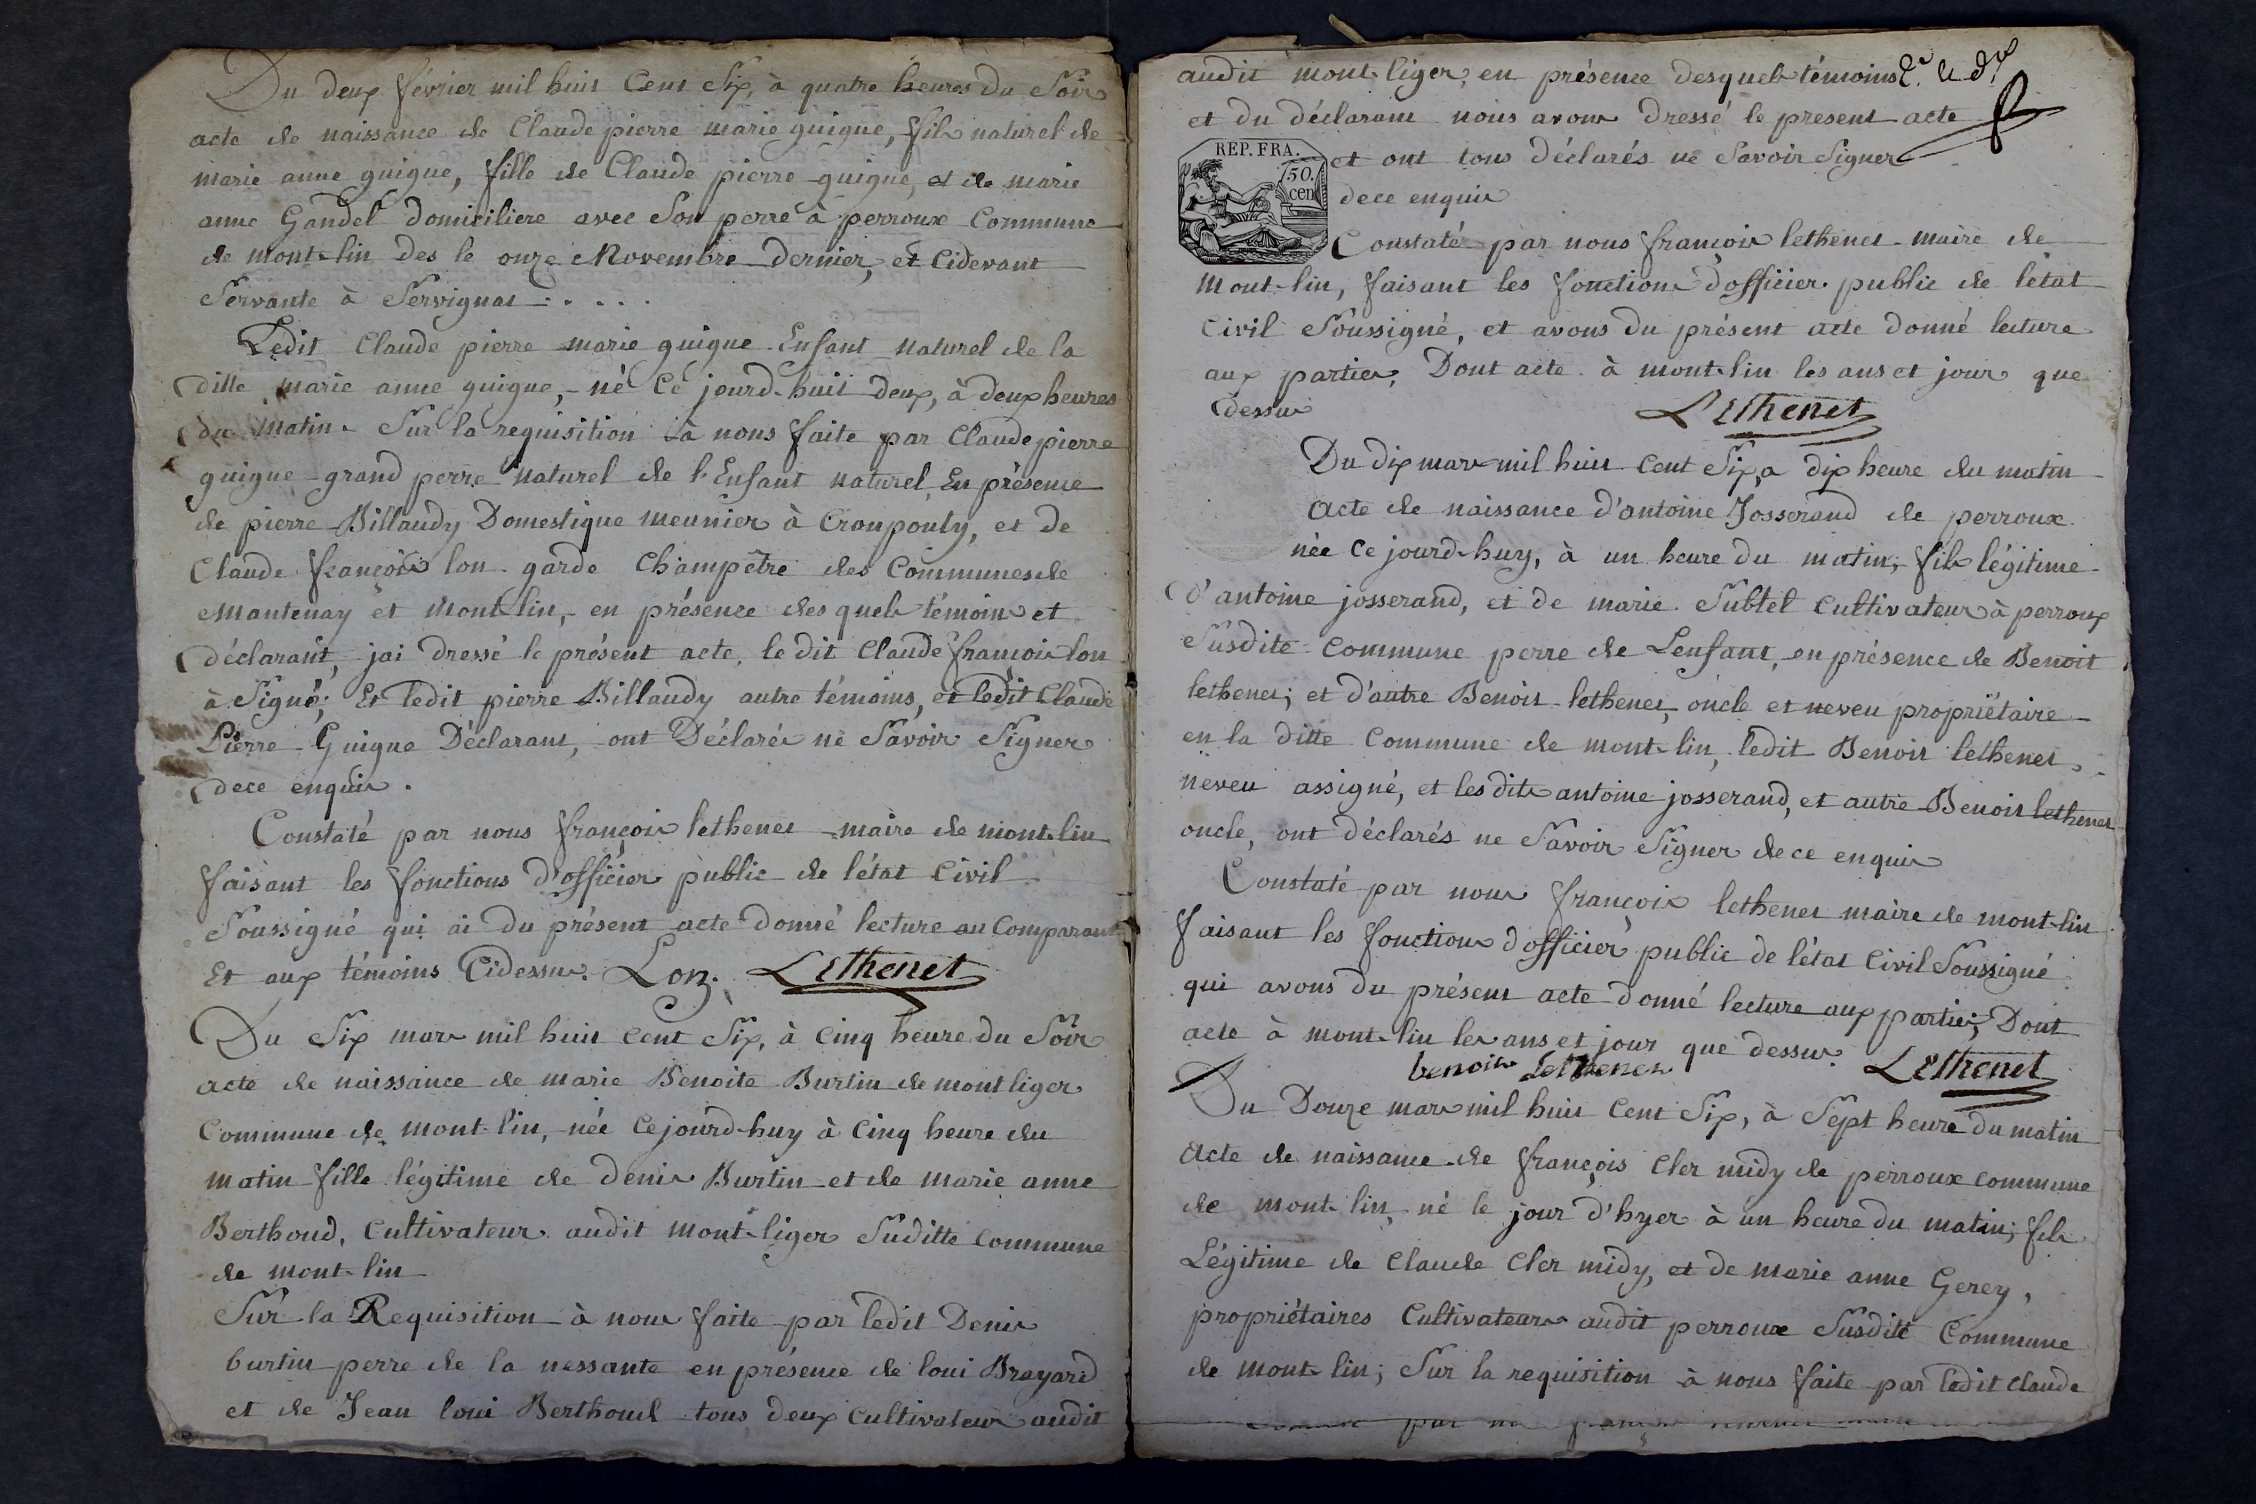 Du deux février mil huit Cent Six, à quatre heures du Soir
acte de naissance de Claude pierre marie guigue, fils naturel de
marie anne guigue, fille de Claude pierre guigue, et de marie
anne Gandel domiciliere avec Son perre à perroux Commune
de mont-lin des le onze Novembre dernier, et Cidevant
Servante à Servignat . . . .
Ledit Claude pierre marie guigue Enfant naturel de la
ditte marie anne guigue, né Ce jourd-huit deux, à deux heures
du matin. Sur la requisition à nous faite par Claude pierre
guigue grand perre naturel de l'Enfant naturel, En présence
de pierre Billaudy Domestique meunier à Cronpouly, et de
Claude françois lon garde Champêtre des Communes de
Mantenay et Mont-lin, en présence des quels témoins et
déclarant, jai dressé le présent acte, le dit Claude françois lon
à Signé; Et ledit pierre Billaudy autre témoins, et ledit Claude
Pierre Guigue Déclarant, ont Déclarés ne Savoir Signer
dece enquis.
Constaté par nous françois lethenet maire de mont-lin
faisant les fonctions d'officier public de l'état Civil
Soussigné qui ai du présent acte donné lecture au Comparant
Et aux témoins Cidessus. Lon. LEthenet
Du Six mars mil huit cent Six, à Cinq heure du Soir
acte de naissance de marie Benoite Burtin de montliger
Commune de mont-lin, née Cejourd-huy à Cinq heure du
matin fille légitime de denis Burtin et de marie anne
Berthoud, Cultivateur audit mont-liger Suditte Commune
de mont-lin
Sur la Requisition à nous faite par ledit Denis
burtin perre de la nessante en présence de loui Brayard
et de Jean loui Berthoud tous deux Cultivateurs audit
audit mont-liger, en présence desquels témoins
et du déclarant nous avons dressé le present acte
REP. FRA.
50.
cen
et ont tous déclarés ne Savoir Signer
dece enquis
Constaté par nous françois lethenet maire de
Mont-lin, faisant les fonctions d'officier public de l'état
Civil Soussigné, et avons du présent acte donné lecture
aux parties, Dont acte à mont-lin les ans et jour que
dessus LEthenet
Du dix mars mil huit Cent Six, a dix heure du matin
acte de naissance d'antoine Josserand de perroux
née Ce jourd-huy, à un heure du matin, fils légitime
d'antoine josserand, et de marie Subtel Cultivateur à perroux
Susdite Commune perre de Lenfant, en présence de Benoit
lethenet; et d'autre Benoit lethenet, oncle et neveu propriétaire
en la ditte Commune de mont-lin, ledit Benoit lethenet
neveu assigné, et lesdits antoine josserand, et autre Benoit lethenet
oncle, ont déclarés ne Savoir Signer dece enquis
Constaté par nous françois lethenet maire de mont-lin
faisant les fonctions d'officier public de l'état Civil Soussigné
qui avons du présent acte donné lecture aux parties, Dont
acte à mont-lin les ans et jour que dessus. LEthenet
benoit Lethenet
Du Douze mars mil huit Cent Six, à Sept heure du matin
acte de naissance de françois Cler midy de perroux commune
de mont-lin, né le jour d'hyer à un heure du matin; fils
Légitime de Claude Cler midy, et de marie anne Gerey,
propriétaires Cultivateurs audit perroux Susditte Commune
de mont-lin; Sur la requisition à nous faite par ledit Claude